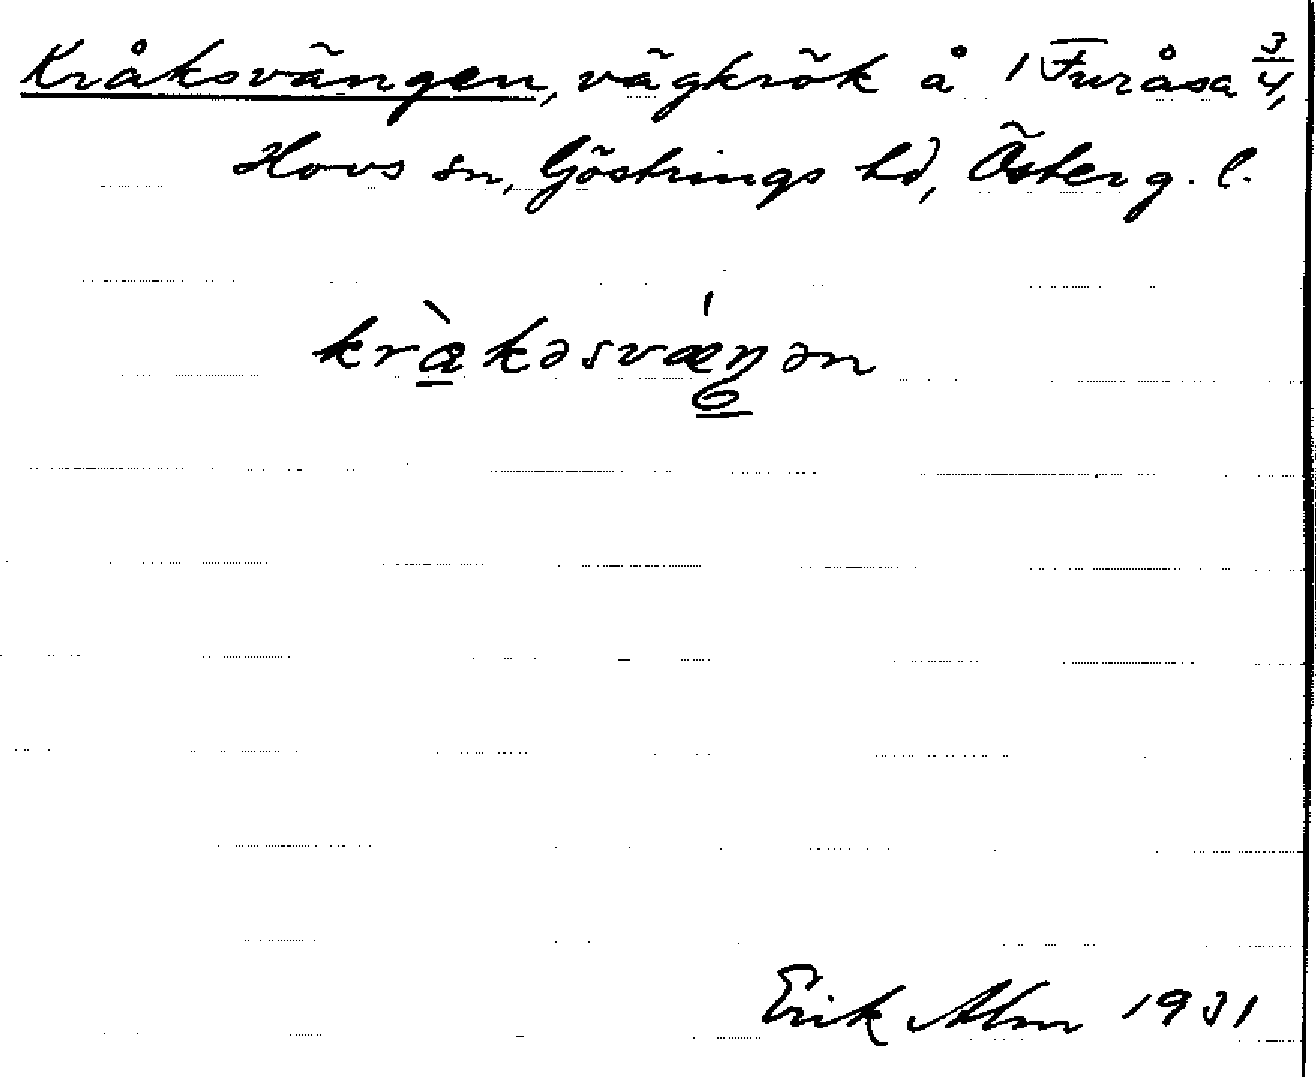 Kråksvängen, vägkrök å 1 Furåsa 3/4,
Hovs sn, Göstrings hd, Österg. l.
kràkəsvǽŋən
Erik Alm 1931